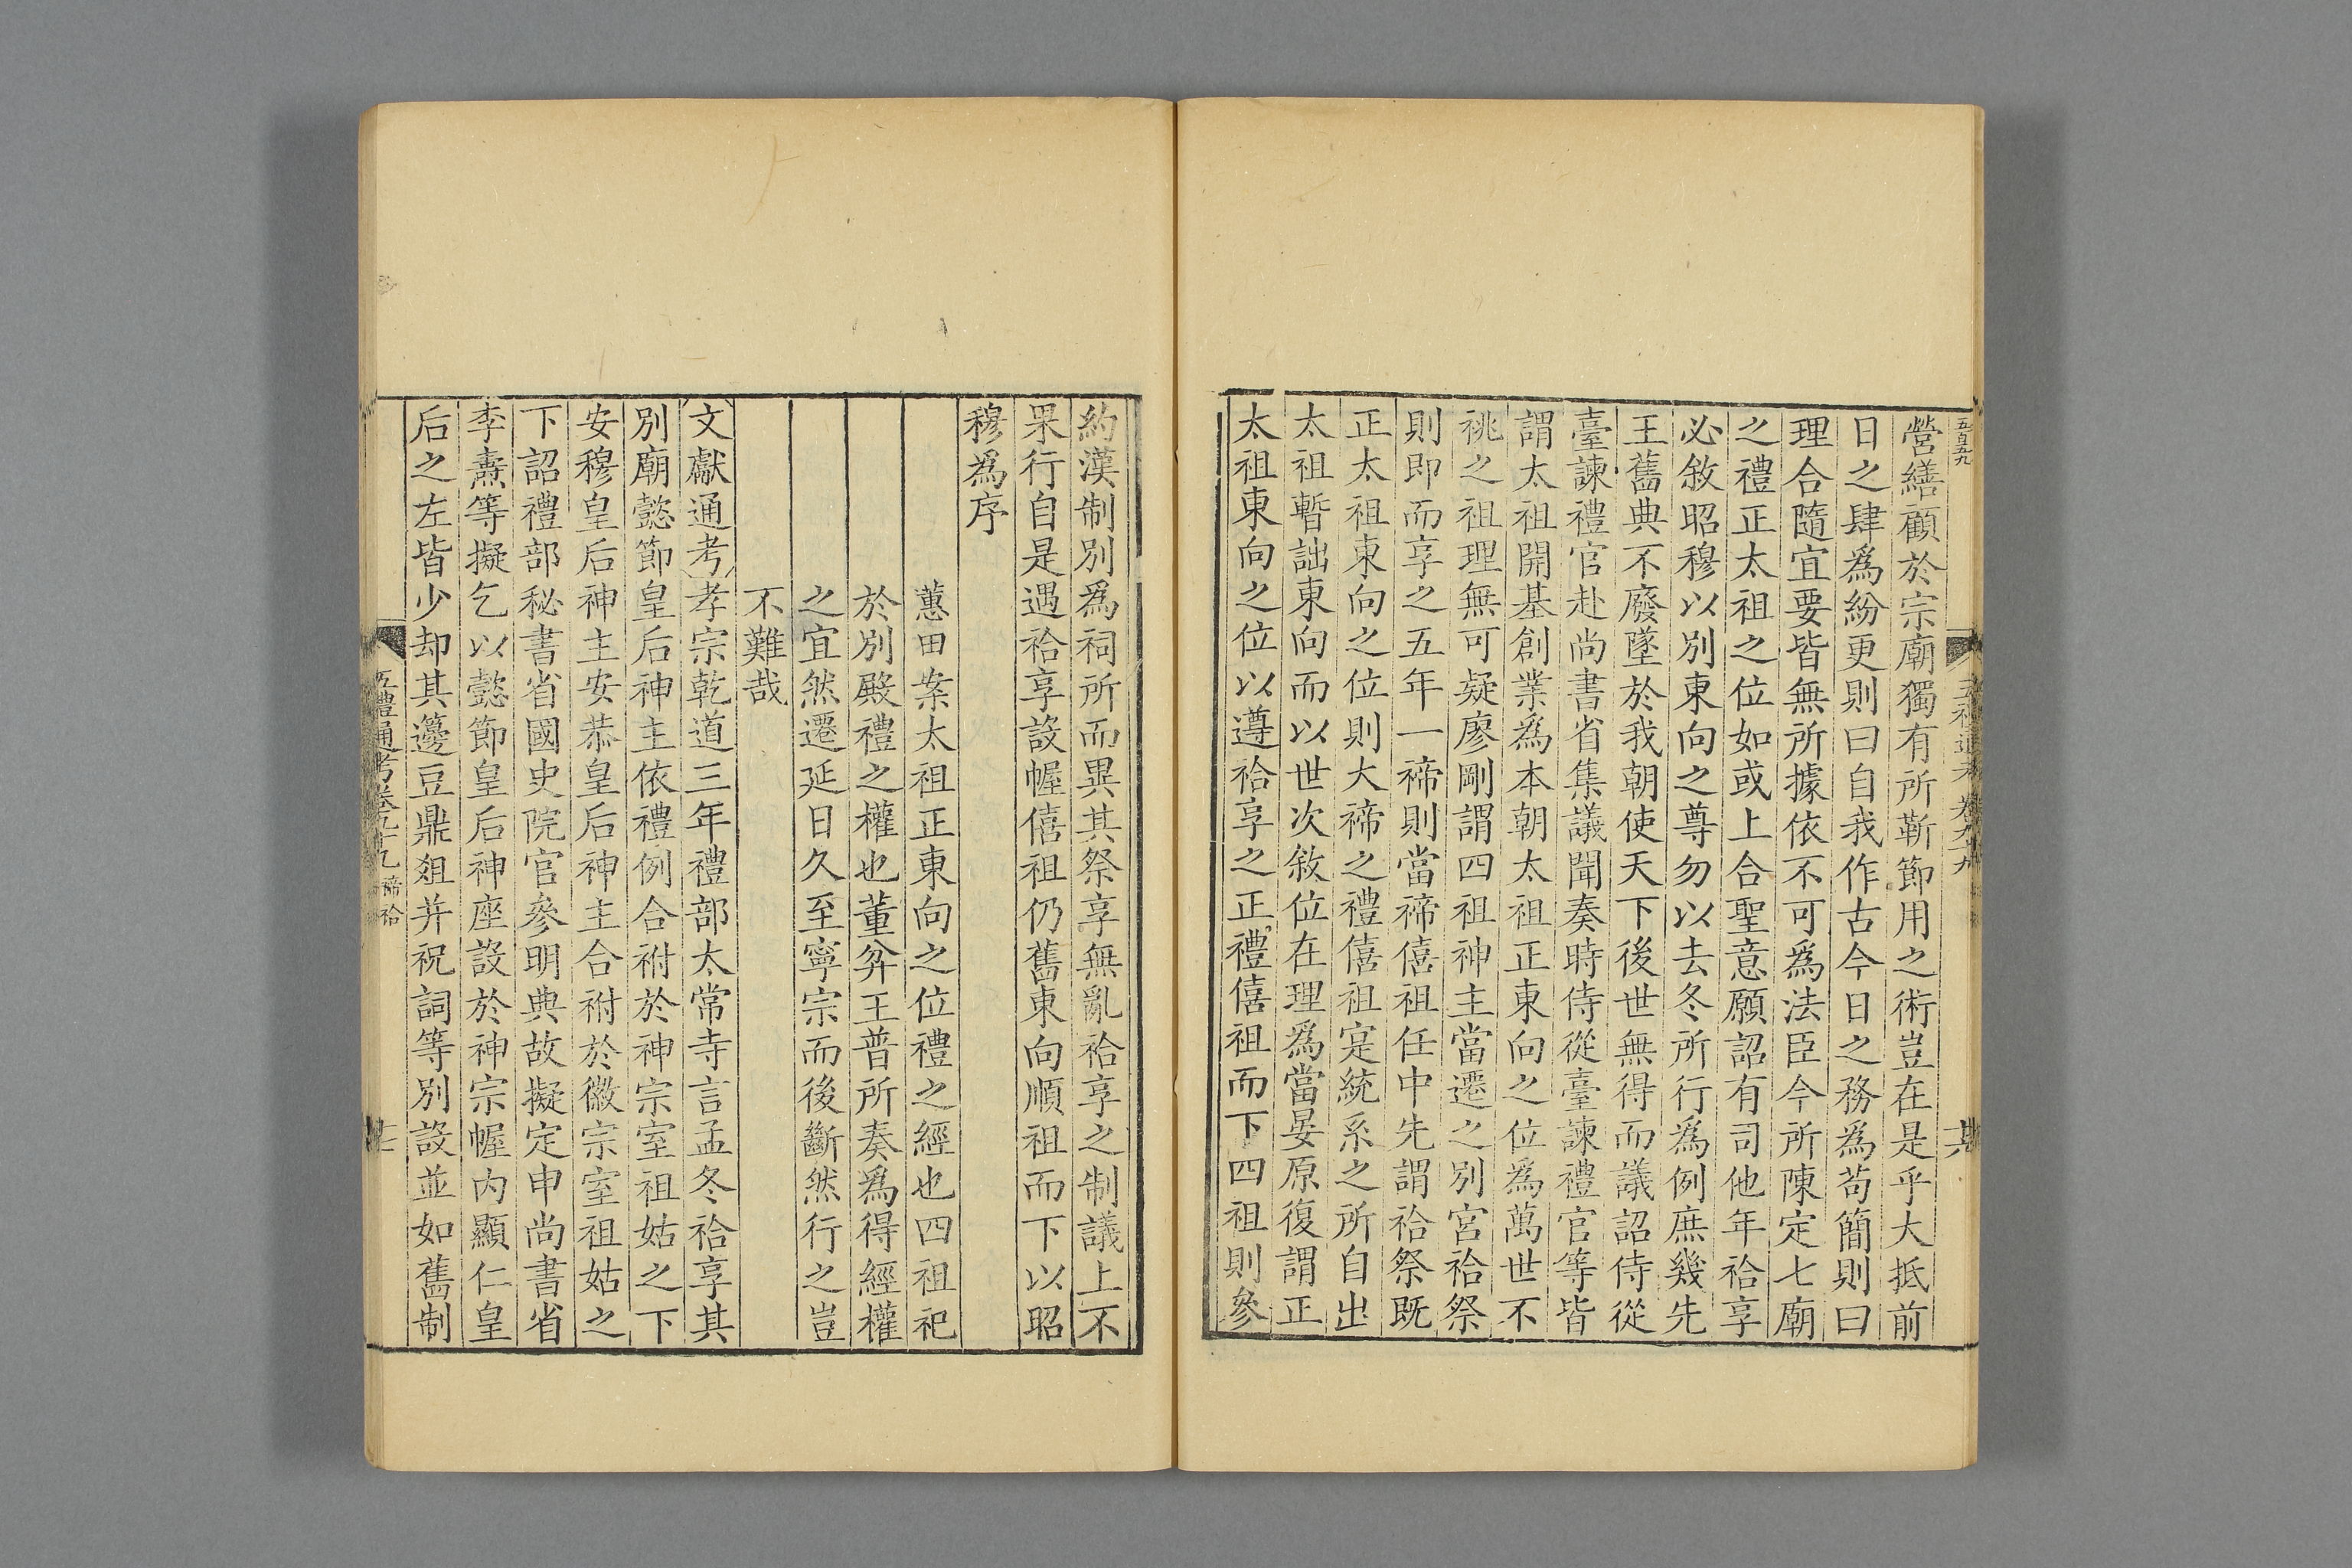 五百五九
五禮通考卷九十九
其
營繕顧於宗廟獨有所靳節用之術豈在是乎大抵前
日之肆爲紛更則曰自我作古今日之務爲茍簡則曰
理合隨宜要皆無所據依不可爲法臣今所陳定七廟
之禮正太祖之位如或上合聖意願詔有司他年祫享
必敘昭穆以別東向之尊勿以去冬所行爲例庶幾先
王舊典不廢墜於我朝使天下後世無得而議詔侍從
臺諫禮官赴尚書省集議聞奏時侍從臺諫禮官等皆
謂太祖開基創業爲本朝太祖正東向之位爲萬世不
祧之祖理無可疑廖剛謂四祖神主當遷之別宮祫祭
則即而享之五年一禘則當禘僖祖任中先謂祫祭既
正太祖東向之位則大禘之禮僖祖寔統系之所自出
太祖暫詘東向而以世次敘位在理爲當晏原復謂正
太祖東向之位以遵祫享之正禮僖祖而下四祖則參
約漢制別爲祠所而異其祭享無亂祫享之制議上不
果行自是遇祫享設幄僖祖仍舊東向順祖而下以昭
穆爲序
蕙田案太祖正東向之位禮之經也四祖祀
於別殿禮之權也董弅王普所奏爲得經權
之宜然遷延日久至寧宗而後斷然行之豈
不難哉
文獻通考孝宗乾道三年禮部太常寺言孟冬祫享其
別廟懿節皇后神主依禮例合祔於神宗室祖姑之下
安穆皇后神主安恭皇后神主合祔於徽宗室祖姑之
下詔禮部秘書省國史院官參明典故擬定申尚書省
李燾等擬乞以懿節皇后神座設於神宗幄內顯仁皇
后之左皆少却其籩豆鼎俎并祝詞等別設並如舊制
五禮通考卷九十九 禘祫